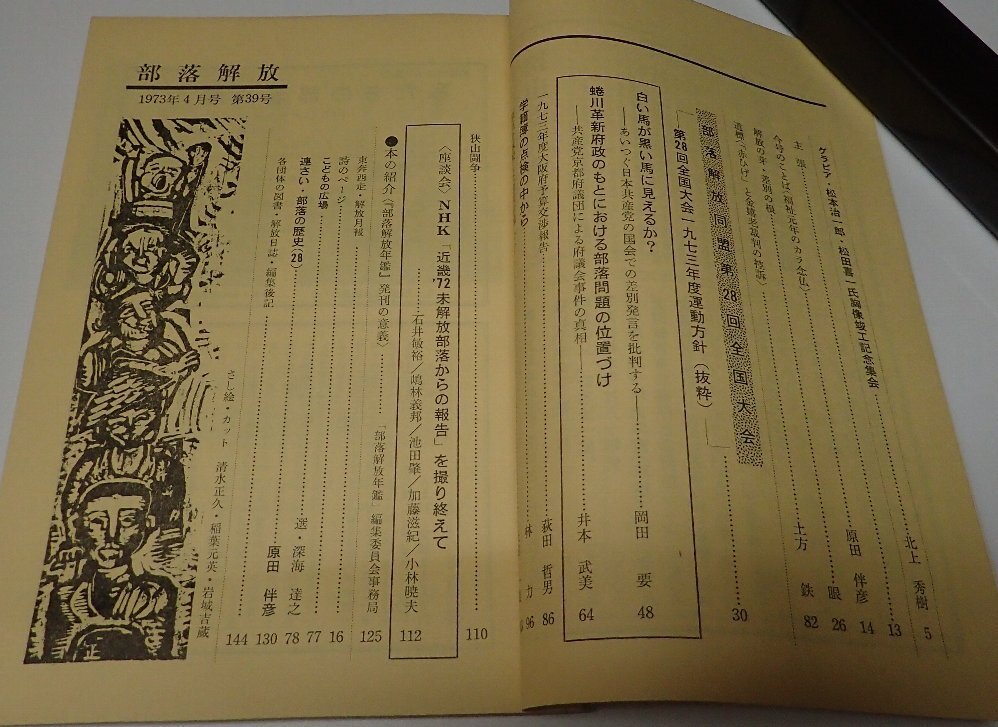 グラビア・松本治一郎・松田喜一氏胸像竣工記念集会
北上 秀樹 5
主張 13
今号のことば〈福祉元年のカラ念仏〉 原田 伴彦 14
解放の芽・差別の根 眼 26
道標〈「赤ひげ」と金嬉老裁判の控訴〉 土方 鉄 82
部落解放同盟第28回全国大会
第28回全国大会一九七三年度運動方針（抜粋） 30
白い馬が黒い馬に見えるか？
――あいつぐ日本共産党の国会での差別発言を批判する―― 岡田 要 48
蜷川革新府政のもとにおける部落問題の位置づけ
――共産党京都府議団による府議会事件の真相―― 井本 武美 64
一九七三年度大阪府予算交渉報告 荻田 哲男 86
学籍簿の点検の中から 林 力 96
狭山闘争 110
〈座談会〉NHK「近畿'72未解放部落からの報告」を撮り終えて
石井敏裕／嶋林義邦／池田肇／加藤滋紀／小林暁夫 112
●本の紹介〈『部落解放年鑑』発刊の意義〉 『部落解放年鑑』編集委員会事務局 125
東奔西走・解放月報 16
詩のページ 77
こどもの広場 選・深海 達之 78
連さい・部落の歴史(28) 原田 伴彦 130
各団体の図書・解放日誌・編集後記 144
さし絵・カット 清水正久・稲葉元英・岩城吉蔵
部落解放
1973年4月号 第39号